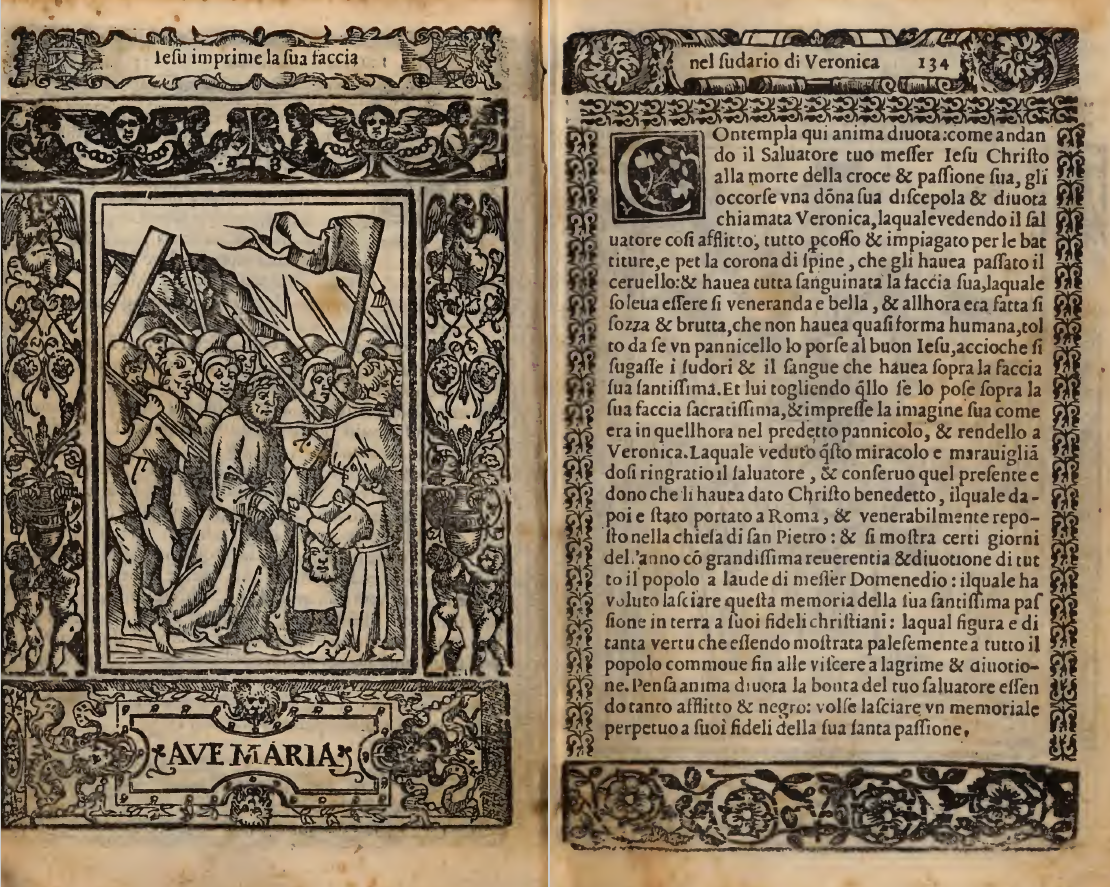 Iesu imprime la sua faccia
AVE MARIA
nel sudario di Veronica 134
COntempla qui anima diuota:come andan
do il Saluatore tuo messer Iesu Christo
alla morte della croce & passione sua, gli
occorse vna dōna sua discepola & diuota
chiamata Veronica,laqualevedendo il sal
uatore cosi afflitto, tutto pcosso & impiagato per le bat
titure,e pet la corona di spine, che gli hauea passato il
ceruello:& hauea tutta sanguinata la faccia sua,laquale
soleua essere si veneranda e bella, & allhora era fatta si
sozza & brutta,che non hauea quasi forma humana,tol
to da se vn pannicello lo porse al buon Iesu,accioche si
sugasse i sudori & il sangue che hauea sopra la faccia
sua santissima.Et lui togliendo q̄llo se lo pose sopra la
sua faccia sacratissima,&impresse la imagine sua come
era in quellhora nel predetto pannicolo, & rendello a
Veronica.Laquale veduto q̄sto miracolo e marauigliā
dosi ringratio il saluatore, & conseruo quel presente e
dono che li hauea dato Christo benedetto, ilquale da-
poi e stato portato a Roma, & venerabilmente repo-
sto nella chiesa di san Pietro: & si mostra certi giorni
del.'anno cō grandissima reuerentia &diuotione di tut
to il popolo a laude di messer Domenedio: ilquale ha
voluto lasciare questa memoria della sua santissima pas
sione in terra a suoi fideli christiani: laqual figura e di
tanta vertu che essendo mostrata palesemente a tutto il
popolo commoue fin alle viscere a lagrime & diuotio-
ne. Pensa anima diuota la bonta del tuo saluatore essen
do tanto afflitto & negro: volse lasciare vn memoriale
perpetuo a suoi fideli della sua santa passione.